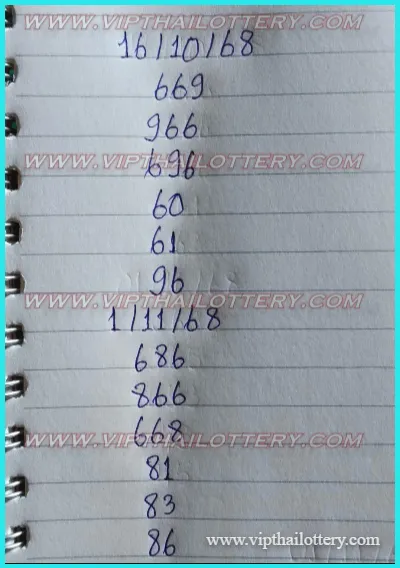 WWW.VIPTHAILOTTERY.COM
16/10/68
669
966
WWW.VIPTHAILOTTERY.COM
696
60
61
96
WWW.VIPTHAILOTTERY.COM
1/11/68
686
866
WWW.VIPTHAILOTTERY.COM
668
81
83
www.vipthailottery.com
86